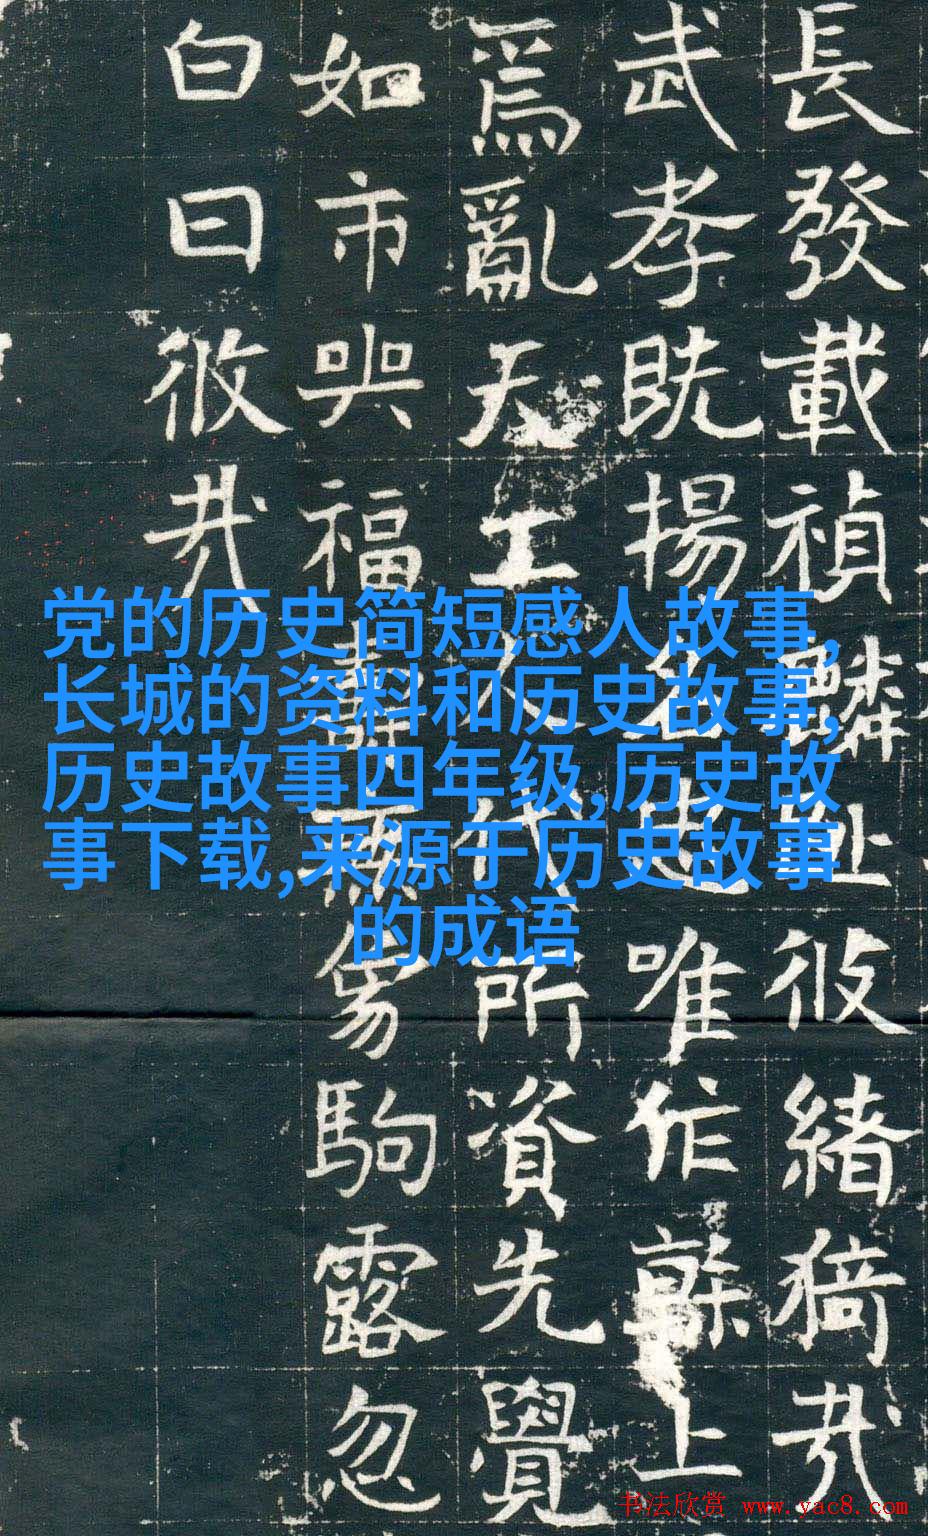 長發載禎麟趾緒猗哉
武孝既揚名唯作上
爲亂天工人代所資先覺
如市與福壽駒露忽
白日哉
党的历史简短感人故事,
长城的资料和历史故事,
历史故事四年级,历史故
事下载,来源于历史故事
的成语
书法欣赏 www.yac8.com